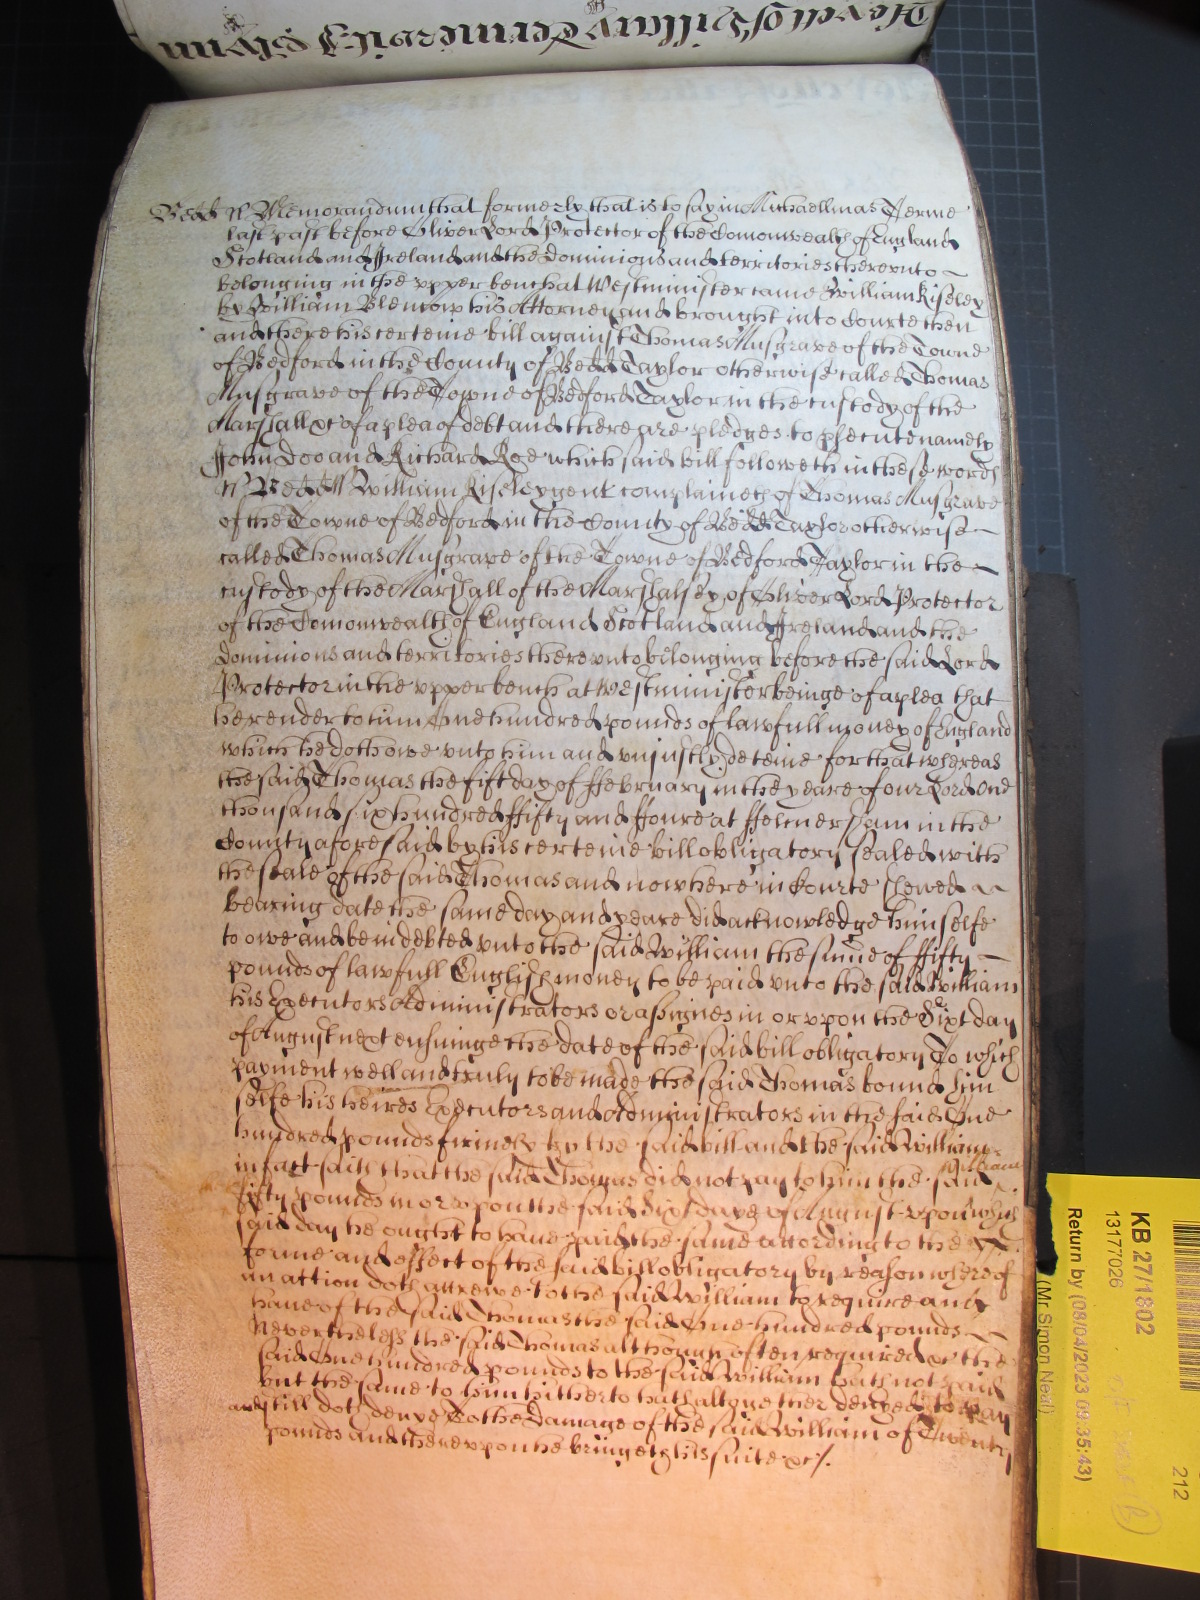 Bedd ss Memorandum that formerly that is to say in Michaellmas Terme
last past before Oliver Lord Protector of the Comonwealth of England
Scotland and Ireland and the dominions and territories therevnto
belonging in the vpper bench at Westminister came William Riseley
by William Blencow his Attorney and brought into Courte then
and there his certeine bill against Thomas Musgrave of the Towne
of Bedford in the County of Bedd Taylor otherwise called Thomas
Musgrave of the Towne of Bedford Taylor in the custody of the
Marshall &c of a plea of debt and there are pledges to psecute namely
John Doo and Richard Roe which said bill followeth in these words
ss Bedd ss William Riseley gent complaineth of Thomas Musgrave
of the Towne of Bedford in the County of Bedd Taylor otherwise
called Thomas Musgrave of the Towne of Bedford Taylor in the
custody of the Marshall of the Marshalsey of Oliver Lord Protector
of the Comonwealth of England Scotland and Ireland and the
dominions and territories therevnto belonging before the said Lord
Protector in the vpper bench at Westminister beinge of a plea that
he render to him One hundred pounds of lawfull money of England
which he doth owe vnto him and vniustly deteine for that whereas
the said Thomas the fift day of ffebruary in the yeare of our Lord One
thousand six hundred ffifty and ffoure at ffelmersham in the
County aforesaid by his certeine bill obligatory sealed with
the seale of the said Thomas and now here in Courte shewed
bearing date the same day and yeare did acknowledge himselfe
to owe and be indebted vnto the said William the sume of ffifty
pounds of lawfull English money to be paid vnto the said William
his Executors Administrators or assignes in or vpon the Sixt day
of August next ensuinge the date of the said bill obligatory To which
payment well and truly to be made the said Thomas bound him
selfe his heires Executors and Administrators in the said One
hundred pounds firmely by the said bill and the said William
in fact saith that the said Thomas did not pay to him the said William
fifty pounds in or vpon the said Sixt daye of August vpon which
said day he ought to have paid the same according to the
forme and effect of the said bill obligatory by reason whereof
an action doth accrewe to the said William to require and
have of the said Thomas the said One hundred pounds
Nevertheless the said Thomas although often required &c the
said One hundred pounds to the said William hath not paid
but the same to him hitherto hath altogether denyed to pay
and still doth denye To the damage of the said William of Twenty
pounds and therevpon he bringeth his suite &c
KB 27/1802
13177026
Return by (08/04/2023 09:35:43)
(Mr Simon Neal)
212